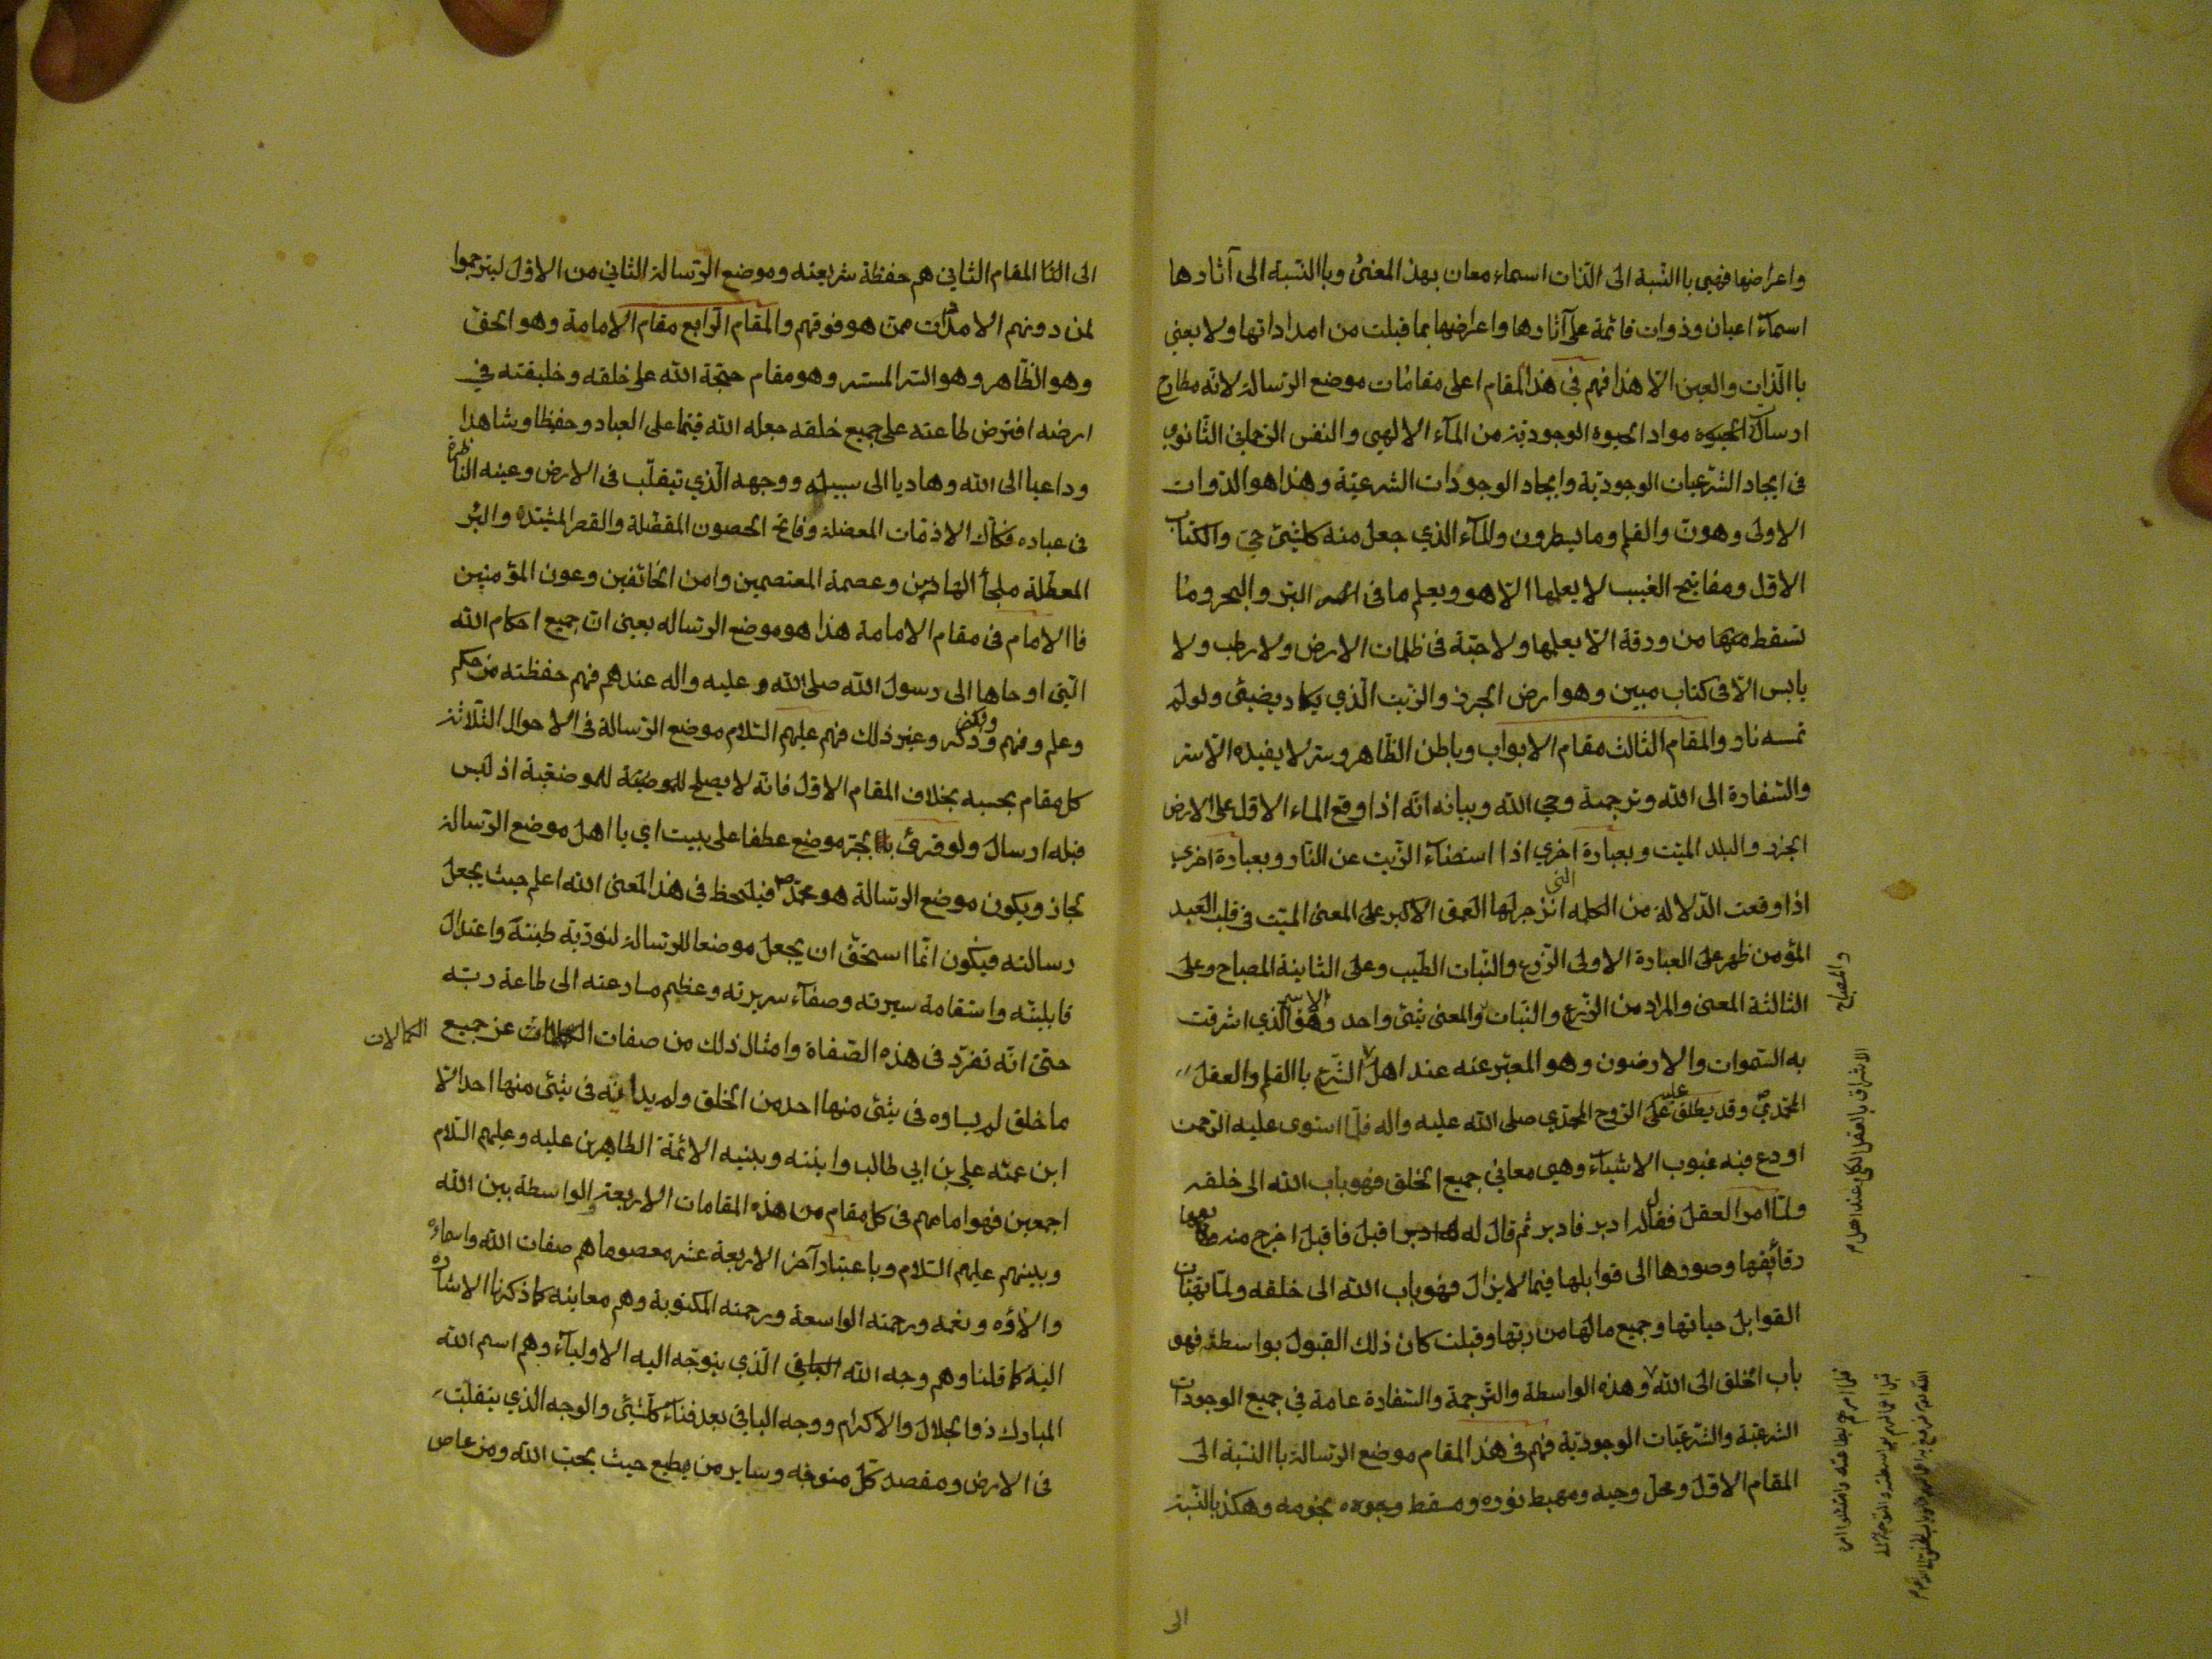 واعراضها فهي باالنّسبة الى الذّات اسماء معان بهذ المعنى وباالنّسبة الى آثارها
اسمآء اعيان وذوات قائمة على آثارها واعراضها بما قبلت من امداداتها ولا يعنى
باالذّات والعين الّا هذا فهم في هذ المقام اعلى مقامات موضع الرّسالة لانّه مطارح
ارسال الحيوه مواد الحيوه الوجوديّة من المآء الالهي والنفس الرّحماني الثّانوي
فى ايجاد الشّرعيات الوجوديّة وايجاد الوجودات الشرعيّة وهذا هو الذّوات
الاولى وهو ن والقلم وما يسطرون والمآء الذي جعل منه كلّ شئ حيّ والكتاب
الاوّل ومفاتيح الغيب لا يعلمها الّا هو ويعلم ما فى البّر والبحر وما
تسقط من ورقة الّا يعلمها ولا حبّة فى ظلمات الارض ولا رطب ولا
يابس الّا فى كتاب مبين وهو ارض الجرز والزّيت الّذي يكاد يضيئى ولو لم
تمسه نار والمقام الثالث مقام الابواب وباطن الظّاهر وسرّ لا يفيده الّا سّر
والسّفارة الى الله وترجمة وحي الله وبيانه انّه اذا وقع الماء الاوّل على الارض
الجرز والبلد الميّت وبعبارة اخرى اذا استضآء الزّيت عن النّار وبعبارة اخرى
اذا وقعت الدّلالة من الكلمه التى انزجر لها العمق الاكبر على المعنى الميّت فى قلب العبد
المؤمن ظهر على العبارة الاولى الزّرع والنّبات الطّيب وعلى الثانية المصباح وعلى
الثالثة المعنى والمراد من الزّرع والنّبات والمصباح والمعنى شئى واحد وهو الاسم الّذي اشرقت
به السّموات والارضون وهو المعبّر عنه عند اهل الاشراق بالعقل الكلى وعند اهل الشّرع باالقلم والعقل
المحمّديّ وقد يطلق عليه الرّوح المحمّدي صلى الله عليه واله فلمّا استوى عليه الرّحمن
اودع فيه غيوب الاشيآء وهي معاني جميع الخلق فهو باب الله الى خلقه
ولمّا امر العقل فقال له ادبر فادبر ثم قال له اقبل فاقبل اخرج منه
رقائقها وصورها الى قوابلها فيما لا يزال فهو باب الله الى خلقه ولمّا تهيّئات
القوابل حياتها وجميع ما لها من ربّها وقبلت كان ذلك القبول بواسطة فهو
باب الخلق الى الله وهذه الواسطة والتّرجمة والسّفارة عامة في جميع الوجودات
الشرعيّة والشّرعيّات الوجوديّة فهم فى هذ المقام موضع الرّسالة باالنّسبة الى
المقام الاوّل ومحلّ وحيه ومهبط نوره ومسقط نجومه وهكذ بالنّسبة
الى
الى المقام الثاني هم حفظة شريعته وموضع الرّسالة الثّاني من الاوّل ليترجموا
لمن دونهم الامدادات ممّن هو فوقهم والمقام الرّابع مقام الامامة وهو الحقّ
وهو الظّاهر وهو السّر المستسر وهو مقام حجّة الله على خلقه وخليفته في
ارضه افترض طاعته على جميع خلقه جعله الله قيّما على العباد وحفيظا وشاهدا
وداعيا الى الله وهاديا الى سبيله ووجهه الّذي تيقلّب فى الارض وعينه النّاظرة
فى عباده فكّاك الازمّات المعضلة وفاتح الحصون المقفّلة والقصر المشيّدة والبئر
المعطّلة ملجأ الهاربين وعصمة المعتصمين وامن الخائفين وعون المؤمنين
فاالامام فى مقام الامامة هذا هو موضع الرّساله بمعنى انّ جميع احكام الله
الّتى اوحاها الى رسول الله صلى الله عليه واله عندهم فهم حفظته من حكم
وعلم وفهم وذكر وفكر وغير ذلك فهم عليهم السّلام موضع الرّسالة فى الاحوال الثّلاثة
كل مقام بحسبه بخلاف المقام الاوّل فانّه لا يصلح للموضعيّة اذ ليس
قبله ارسال ولو قرئ بجرّ موضع عطفا على بيت اي يا اهل موضع الرّسالة
لجاز ويكون موضع الرّسالة هو محمّد ص فيلحظ فى هذ المعنى الله اعلم حيث يجعل
رسالته فيكون انّما استحقّ ان يجعل موضعا للرّسالة لنوريّة طينته واعتدال
قابليّته واستقامة سيرته وصفآء سريرته وعظيم مسارعته الى طاعة ربّه
حتىّ انّه تفرّد فى هذه الصّفاة وامثال ذلك من صفات الكمالات عن جميع
ما خلق لم يساوه فى شئى منها احد من الخلق ولم يدانه فى شئى منها احد الّا
ابن عمّه علي بن ابي طالب وابنته وبنيه الائمّة الطاهرين عليه وعليهم السّلام
اجمعين فهو امامهم فى كل مقام من هذه المقامات الاربعة والواسطة بين الله
وبينهم عليهم السّلام وباعتبار آخر الاربعة عشر معصوما هم صفات الله واسماؤه
والاؤه ونعمه ورحمته الواسعة ورحمته المكتوبة وهم معانيه كما ذكرنا الاشارة
اليه كما قلنا وهم وجه الله الّذي يتوجّه اليه الاوليآء وهم اسم الله
المبارك ذو الجلال والاكرام ووجه الباقى بعد فنآء كلّ شئى والوجه الذي يتقلّب
فى الارض ومقصد كلّ متوجّه وساير من مطيع حيث يحبّ الله ومن عاص